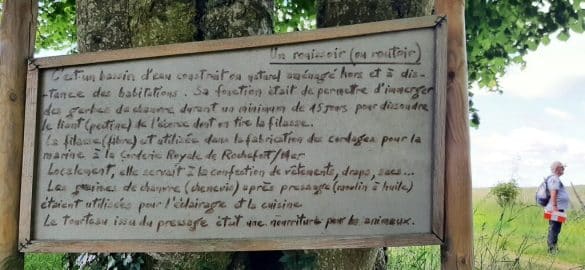 Un rouissoir (ou routoir)
C'est un bassin d'eau construit ou naturel aménagé hors et à dis-
-tance des habitations. Sa fonction était de permettre d'immerger
des gerbes de chanvre durant un minimum de 45 jours pour dissoudre
le liant (pectine) de l'écorce dont on tire la filasse.
La filasse (fibre) est utilisée dans la fabrication de cordages pour la
marine à la Corderie Royale de Rochefort/Mer
Localement, elle servait à la confection de vêtements, draps, sacs...
Les graines de chanvre (chenevis) après pressage (moulin à huile)
étaient utilisées pour l'éclairage et la cuisine
Le tourteau issu du pressage était une nourriture pour les animaux.